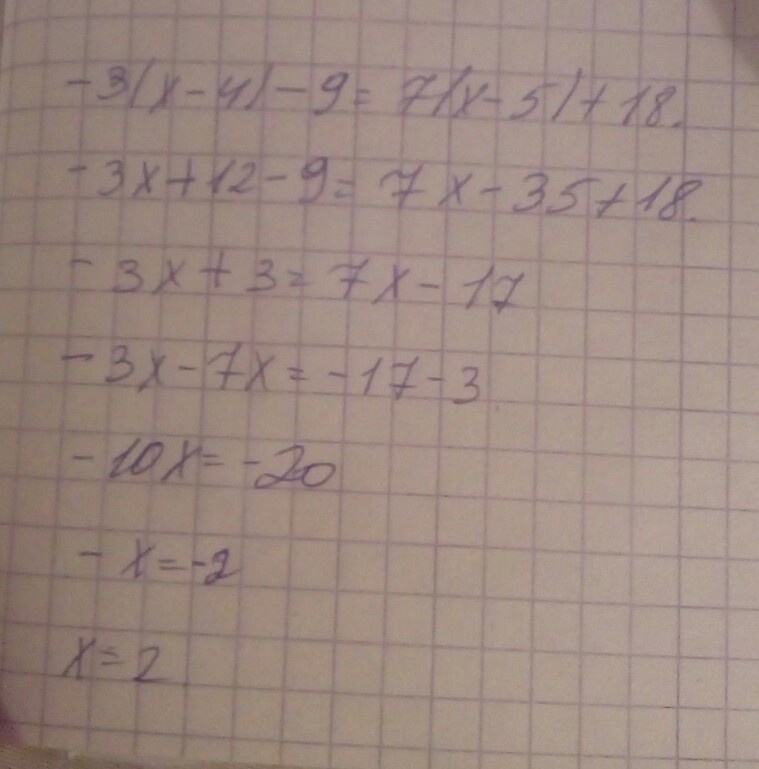 -3(x-4)-9=7(x-5)+18.
-3x+12-9=7x-35+18.
-3x+3=7x-17
-3x-7x=-17-3
-10x=-20
-x=-2
x=2